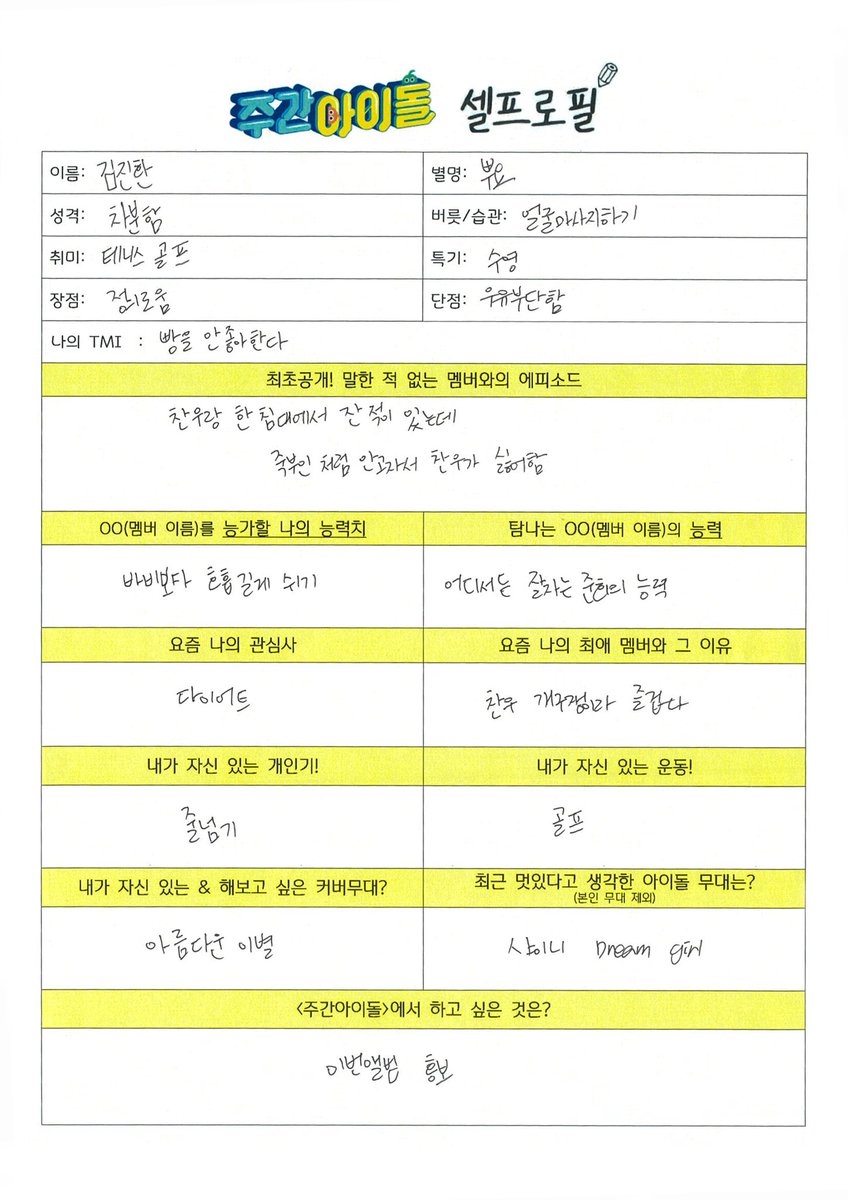 주간아이돌 셀프로필
이름: 김진환 별명: 뿌요
성격: 차분함 버릇/습관: 얼굴마사지하기
취미: 테니스 골프 특기: 수영
장점: 정의로움 단점: 우유부단함
나의 TMI : 빵을 안좋아한다
최초공개! 말한 적 없는 멤버와의 에피소드
찬우랑 한 침대에서 잔 적이 있는데
죽부인 처럼 안고자서 찬우가 싫어함
OO(멤버 이름)를 능가할 나의 능력치 탐나는 OO(멤버 이름)의 능력
바비보다 호흡길게 쉬기 어디서든 잘자는 준회의 능력
요즘 나의 관심사 요즘 나의 최애 멤버와 그 이유
다이어트 찬우 개구쟁이라 즐겁다
내가 자신 있는 개인기! 내가 자신 있는 운동!
줄넘기 골프
내가 자신 있는 & 해보고 싶은 커버무대? 최근 멋있다고 생각한 아이돌 무대는?
(본인 무대 제외)
아름다운 이별 샤이니 Dream girl
<주간아이돌>에서 하고 싶은 것은?
이번앨범 홍보